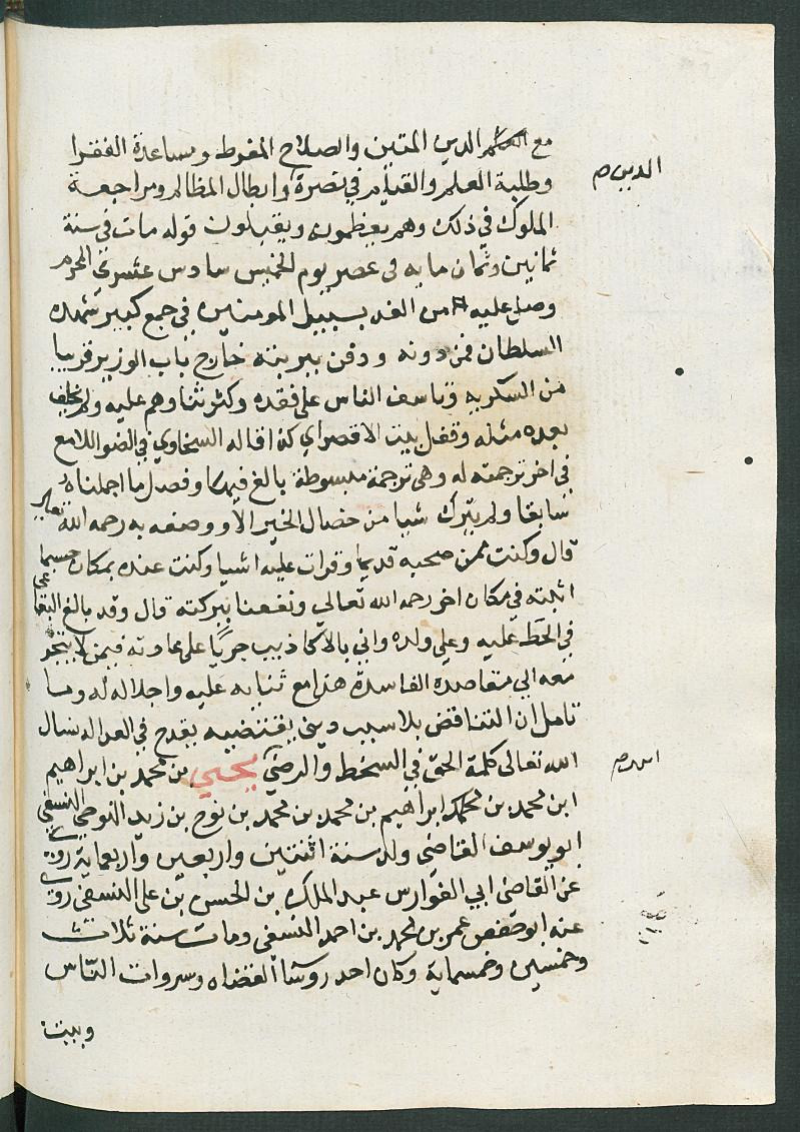 مع الدين المتين والصلاح المفرط ومساعدة الفقرا
الدين م
وطلبة العلم والقيام في نصرة وابطال المظالم ومراجعة
الملوك في ذلك وهم يعظمونه ويقبلون قوله مات في سنة
ثمانين وثمان مايه في عصر يوم الخميس سادس عشري المحرم
وصلي عليه من الغد بسبيل المومنين في جمع كبير شهده
السلطان فمن دونه ودفن بتربته خارج باب الوزير قريبا
من السكريه وتاسف الناس على فقده وكثر ثناوهم عليه ولم يخلف
بعده مثله وقفل بيت الاقصراي كذا قاله السخاوي في الضو اللامع
في اخر ترجمته له وهى ترجمة مبسوطة بالغ فيها وفصل ما اجملناه
سابقا ولم يترك شيا من خصال الخير الا ووصفه به رحمه الله تعالى
قال وكنت ممن صحبه قديما وقرات عليه اشيا وكنت عنده بمكان حسبما
اثبته في مكان اخر رحمه الله تعالى ونفعنا ببركته قال وقد بالغ البقاعى
في الحط عليه وعلى ولده واتي بالاكاذيب جريا على عادته فيمن لا ينجر
معه الي مقاصده الفاسدة هذا مع ثنايه عليه واجلاله له وما
تامل ان التناقض بلا سبب ديني يقتضيه يقدح في العداله نسال
الله تعالى كلمة الحق في السخط والرضى يحيي بن محمد بن ابراهيم
ابن محمد بن محمد ابراهيم بن محمد بن محمد بن نوح بن زيد النوحي النسفي
ابو يوسف القاضي ولد سنة اثنتين واربعين واربعماية روى
عن القاضى ابي الفوارس عبد الملك بن الحسن بن على النسفي روى
عنه ابو حفص عمر بن محمد بن احمد النسفي ومات سنة ثلاث
وخمسين وخمسماية وكان احد روسا القضاه وسروات الناس
وبيت